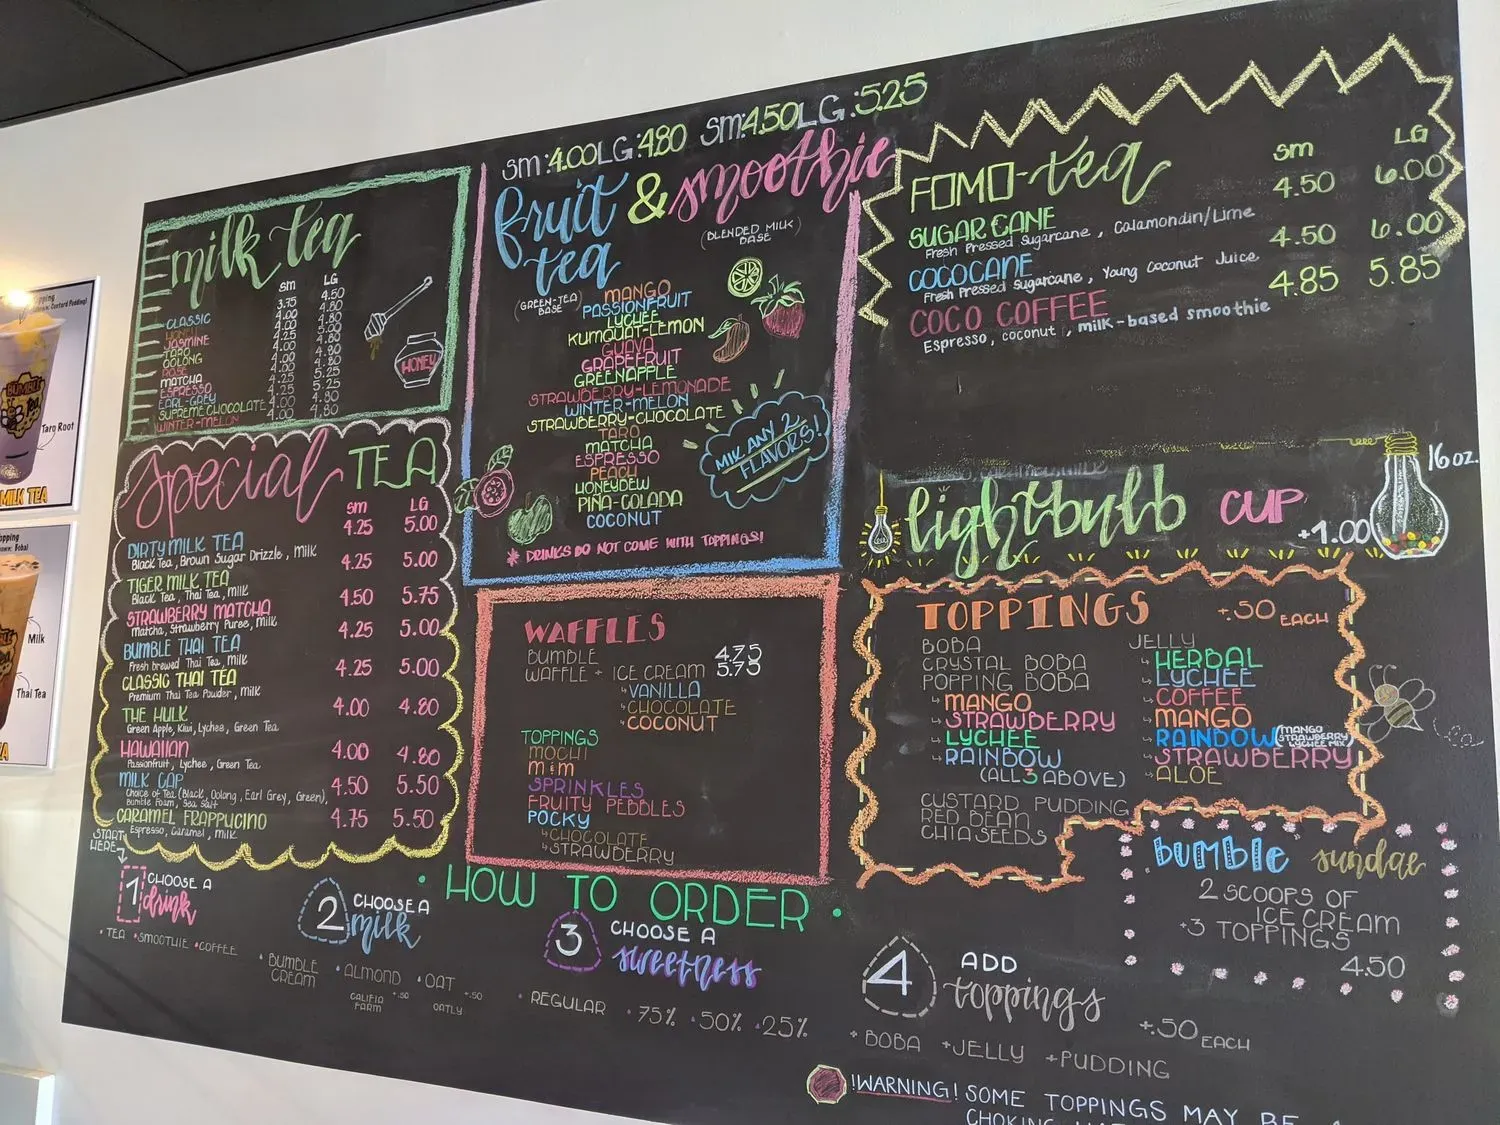 milk tea
sm LG
3.75 4.50
CLASSIC 4.00 4.80
JASMINE
TARO
OOLONG
ROSE
MATCHA
ESPRESSO
EARL-GREY
SUPREME CHOCOLATE
WINTER-MELON 4.00 4.80
HONEY
sm:4.00 LG:4.80 sm:4.50 LG:5.25
fruit tea & smoothie
(GREEN-TEA BASE)
(BLENDED MILK BASE)
MANGO
PASSIONFRUIT
LYCHEE
KUMQUAT-LEMON
GUAVA
GRAPEFRUIT
GREENAPPLE
STRAWBERRY-LEMONADE
WINTER-MELON
STRAWBERRY-CHOCOLATE
TARO
MATCHA
ESPRESSO
PEACH
HONEYDEW
PINA-COLADA
COCONUT
MIX ANY 2 FLAVORS!
* DRINKS DO NOT COME WITH TOPPINGS!
FOMO-tea sm LG
4.50 6.00
SUGAR CANE
Fresh Pressed Sugarcane, Calamondin/Lime
4.50 6.00
COCOCANE
Fresh Pressed Sugarcane, Young Coconut Juice
4.85 5.85
COCO COFFEE
Espresso, coconut, milk-based smoothie
lightbulb CUP +1.00
16 oz.
Special TEA
sm LG
4.25 5.00
DIRTY MILK TEA
Black Tea, Brown Sugar Drizzle, Milk
4.25 5.00
TIGER MILK TEA
Black Tea, Thai Tea, Milk
4.50 5.75
STRAWBERRY MATCHA
Matcha, Strawberry Puree, Milk
4.25 5.00
BUMBLE THAI TEA
Fresh brewed Thai Tea, Milk
4.25 5.00
CLASSIC THAI TEA
Premium Thai Tea Powder, Milk
4.00 4.80
THE HULK
Green Apple, Kiwi, Lychee, Green Tea
HAWAIIAN 4.00 4.80
Passionfruit, Lychee, Green Tea
MILK CAP 4.50 5.50
Choice of Tea (Black, Oolong, Earl Grey, Green),
Bumble Foam, Sea Salt
CARAMEL FRAPPUCINO 4.75 5.50
Espresso, Caramel, Milk
WAFFLES
BUMBLE 4.75
WAFFLE + ICE CREAM 5.75
VANILLA
CHOCOLATE
COCONUT
TOPPINGS
MOCHI
M&M
SPRINKLES
FRUITY PEBBLES
POCKY
CHOCOLATE
STRAWBERRY
TOPPINGS +.50 EACH
BOBA
CRYSTAL BOBA
POPPING BOBA
MANGO
STRAWBERRY
LYCHEE
RAINBOW
(ALL 3 ABOVE)
CUSTARD PUDDING
RED BEAN
CHIA SEEDS
JELLY
HERBAL
LYCHEE
COFFEE
MANGO
RAINBOW (MANGO STRAWBERRY LYCHEE MIX)
STRAWBERRY
ALOE
bumble sundae
2 SCOOPS OF
ICE CREAM
+3 TOPPINGS
4.50
START HERE
HOW TO ORDER
1 CHOOSE A drink
• TEA • SMOOTHIE • COFFEE
2 CHOOSE A milk
• BUMBLE CREAM • ALMOND • OAT
CALIFIA FARM +.50 OATLY +.50
3 CHOOSE A sweetness
• REGULAR • 75% • 50% • 25%
4 ADD toppings +.50 EACH
+ BOBA + JELLY + PUDDING
!WARNING! SOME TOPPINGS MAY BE A
Taro Root
MILK TEA
Milk
Thai Tea